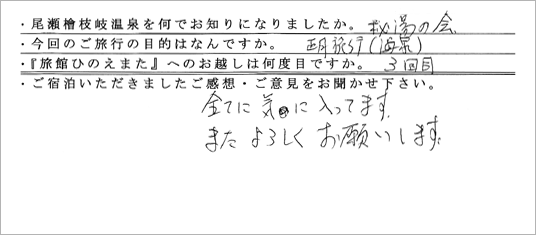 ・尾瀬檜枝岐温泉を何でお知りになりましたか。秘湯の会
・今回のご旅行の目的はなんですか。正月旅行(温泉)
・『旅館ひのえまた』へのお越しは何度目ですか。3回目
・ご宿泊いただきましたご感想・ご意見をお聞かせ下さい。
全てに気に入ってます。
またよろしくお願いします。